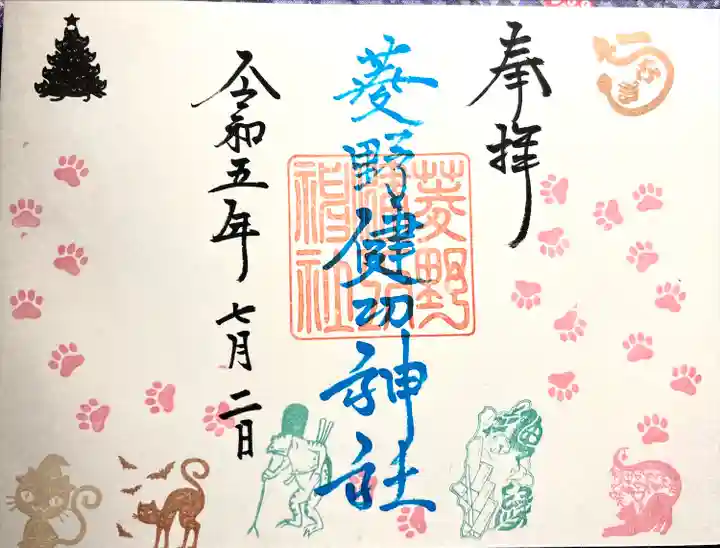 奉拝
菱野健功神社
令和五年七月二日
菱野
神社